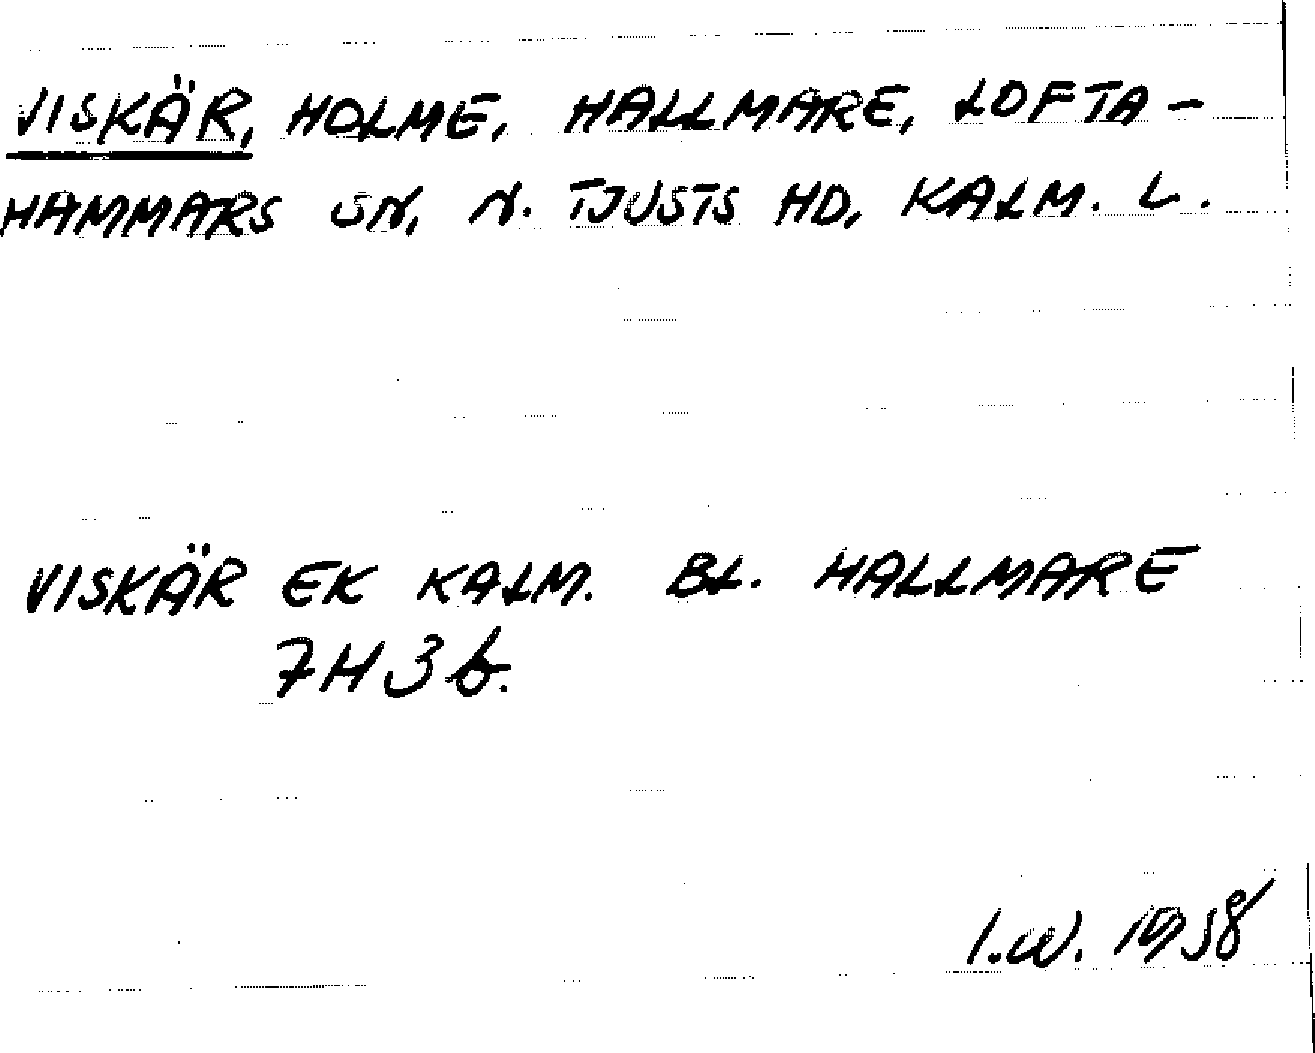 VISKÄR, HOLME, HALLMARE, LOFTA-
HAMMARS SN, N. TJUSTS HD, KALM. L.
VISKÄR EK KALM. BL. HALLMARE
7H3b.
I.W. 1958